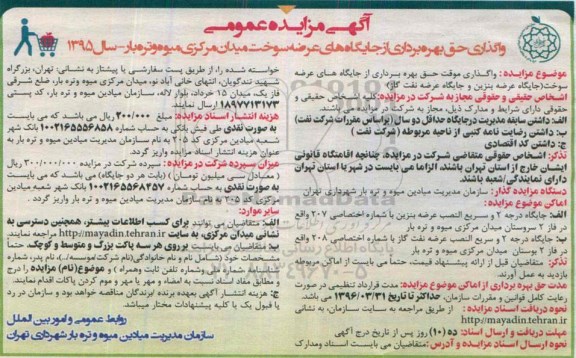 آگهی مزایده عمومی
واگذاری حق بهره برداری از جایگاه های عرضه سوخت میدان مرکزی میوه و تره بار - سال ۱۳۹۵
موضوع مزایده : واگذاری موقت حق بهره برداری از جایگاه های عرضه
سوخت(جایگاه عرضه بنزین و جایگاه عرضه نفت گاز)
اشخاص حقیقی و حقوقی مجاز به شرکت در مزایده: کلیه اشخاص حقیقی و
حقوقی دارای شرایط و مدارک ذیل، مجاز به شرکت در مزایده می باشند.
الف: داشتن سابقه مدیریت درجایگاه حداقل دو سال (براساس مقررات شرکت نفت)
ب: داشتن رضایت نامه کتبی از ناحیه مربوطه (شرکت نفت )
ج: داشتن کد اقتصادی
تذکر: اشخاص حقوقی متقاضی شرکت در مزایده، چنانچه اقامتگاه قانونی
ایشان خارج از استان تهران باشند، الزاما می بایست در شهر یا استان تهران
دارای نمایندگی/شعبه باشند.
دستگاه مزایده گذار : سازمان مدیریت میادین میوه و تره بار شهرداری تهران
اماکن موضوع مزایده :
الف: جایگاه درجه ۲ و سریع النصب عرضه بنزین با شماره اختصاصی ۲۰۷ واقع
در فاز ۲ سروستان میدان مرکزی میوه و تره بار
ب: جایگاه درجه ۲ و سریع النصب عرضه نفت گاز با شماره اختصاصی ۲۰۸ واقع
در فاز ۲ سروستان میدان مرکزی میوه و تره بار
تذکر: متقاضیان قبل از ارائه پیشنهاد قیمت، حتماً می بایست از اماکن مربوطه
بازدید به عمل آورند.
مدت حق بهره برداری از اماکن موضوع مزایده: مدت قرارداد تنظیمی در صورت
رعایت کامل قوانین و مقررات سازمان، حداکثر تا تاریخ ۱۳۹۶/۰۳/۳۱ می باشد.
نحوه دریافت اسناد مزایده : از طریق مراجعه به سایت سازمان، به نشانی
http://mayadin.tehran.ir
مهلت دریافت و ارسال اسناد: ده (۱۰) روز پس از تاریخ درج آگهی
نحوه ارسال اسناد مزایده و آدرس: متقاضیان می بایست اسناد ومدارک
خواسته شده را، از طریق پست سفارشی یا پیشتاز به نشانی: تهران، بزرگراه
شهید تندگویان، انتهای خانی آباد نو، میدان مرکزی میوه و تره بار، ضلع شرقی
فاز یک، میدان ۱۵ خرداد، بلوار لاله، سازمان میادین میوه و تره بار، کد پستی
۱۸۹۷۷۱۳۱۷۳ ارسال نمایند.
هزینه انتشار اسناد مزایده: مبلغ ۲۰۰/۰۰۰ ریال می باشد که می بایست
به صورت نقدی طی فیش بانکی به حساب شماره ۱۰۰۲۱۶۵۵۵۶۸۵۸ بانک شهر
شعبه میادین مرکزی کد ۲۰۵ به نام سازمان مدیریت میادین میوه و تره بار به
عنوان هزینه انتشار اسناد مزایده واریز گردد.
میزان سپرده شرکت در مزایده: سپرده شرکت در مزایده ۳۰۰/۰۰۰/۰۰۰ ریال
( معادل سی میلیون تومان ) ( بابت هر دو جایگاه) می باشد که می بایست
به صورت نقدی به حساب شماره ۱۰۰۲۱۶۵۵۶۸۴۵۷ بانک شهر شعبه میادین
مرکزی کد ۲۰۵ به نام سازمان مدیریت میادین میوه و تره بار واریز گردد.
سایر موارد:
الف: متقاضیان می توانند برای کسب اطلاعات بیشتر، همچنین دسترسی به
نشانی میدان مرکزی، به سایت http://mayadin.tehran.ir مراجعه نمایند.
ب: متقاضیان می بایست بر روی هر سه پاکت بزرگ و متوسط و کوچک، حتماً
مشخصات خود (شامل نام و نام خانوادگی(نام شرکت/موسسه/..)، نام پدر، شماره
شناسنامه، شماره ملی وشماره تلفن ثابت وهمراه ) و موضوع(نام) مزایده را درج
و مطابق مفاد اسناد نسبت به امضاء و مهر یا مهر و موم کردن پاکات اقدام نمایند.
ج: هزینه انتشار آگهی بعهده برنده /برندگان مناقصه خواهد بود و سازمان در رد
یا قبول یک یا کلیه پیشنهادات مختار میباشد.
روابط عمومی و امور بین الملل
سازمان مدیریت میادین میوه و تره بار شهرداری تهران